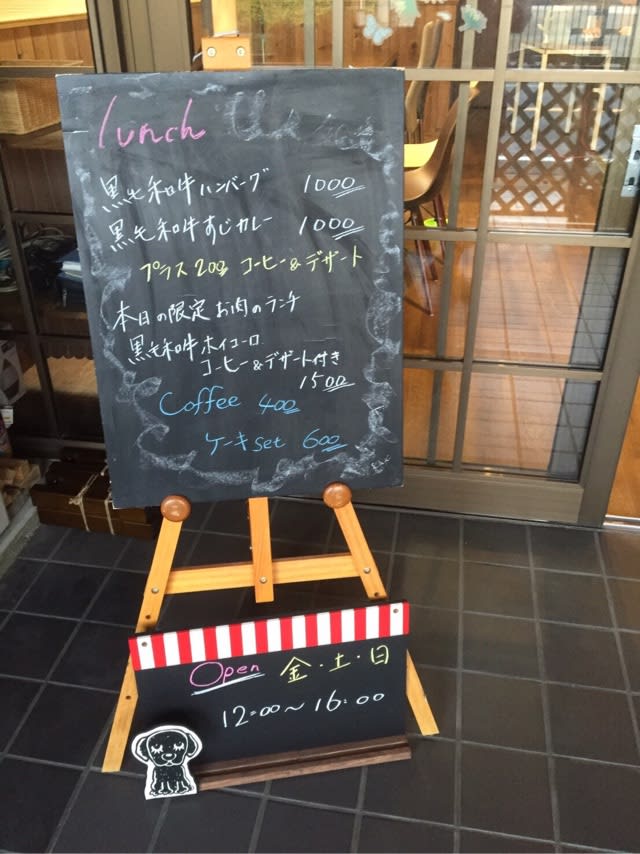 lunch
黒毛和牛ハンバーグ 1000
黒毛和牛すじカレー 1000
プラス200 コーヒー&デザート
本日の限定 お肉のランチ
黒毛和牛ホイコーロ
コーヒー&デザート付き
1500
Coffee 400
ケーキset 600
Open 金・土・日
12:00～16:00